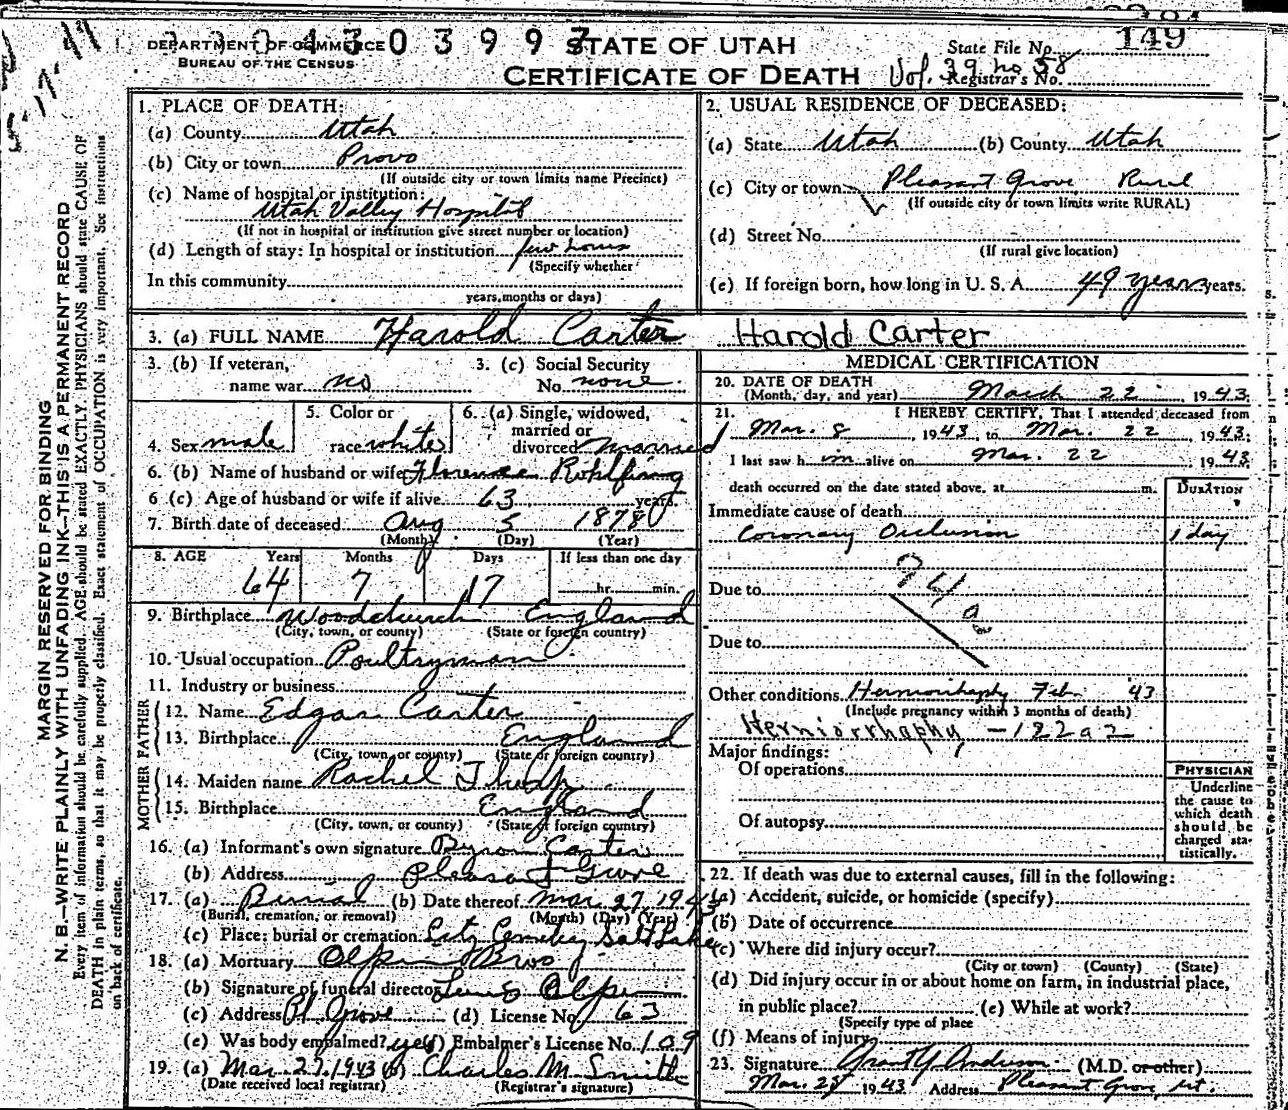 5-17-44
DEPARTMENT OF COMMERCE
BUREAU OF THE CENSUS
430399
STATE OF UTAH
CERTIFICATE OF DEATH
State File No. 149
Vol. 39 no 58
Registrar's No.
MARGIN RESERVED FOR BINDING
N. B.—WRITE PLAINLY WITH UNFADING INK—THIS IS A PERMANENT RECORD
Every item of information should be carefully supplied. AGE should be stated EXACTLY. PHYSICIANS should state CAUSE OF
DEATH in plain terms, so that it may be properly classified. Exact statement of OCCUPATION is very important. See instructions
on back of certificate.
1. PLACE OF DEATH:
(a) County Utah
(b) City or town Provo
(If outside city or town limits name Precinct)
(c) Name of hospital or institution:
Utah Valley Hospital
(If not in hospital or institution give street number or location)
(d) Length of stay: In hospital or institution few hours
(Specify whether
In this community
years, months or days)
2. USUAL RESIDENCE OF DECEASED:
(a) State Utah (b) County Utah
(c) City or town Pleasant Grove Rural
(If outside city or town limits write RURAL)
(d) Street No.
(If rural give location)
(e) If foreign born, how long in U. S. A. 49 years years.
3. (a) FULL NAME Harold Carter Harold Carter
3. (b) If veteran,
name war no
3. (c) Social Security
No. none
4. Sex male
5. Color or
race white
6. (a) Single, widowed,
married or
divorced married
6. (b) Name of husband or wife Florence Rohlfing
6 (c) Age of husband or wife if alive 63 years
7. Birth date of deceased Aug 5 1878
(Month) (Day) (Year)
8. AGE Years Months Days If less than one day
64 7 17 hr. min.
9. Birthplace Woodchurch England
(City, town, or county) (State or foreign country)
10. Usual occupation Poultryman
11. Industry or business
FATHER
12. Name Edgar Carter
13. Birthplace England
(City, town, or county) (State or foreign country)
MOTHER
14. Maiden name Rachel
15. Birthplace England
(City, town, or county) (State or foreign country)
16. (a) Informant's own signature Byron Carter
(b) Address Pleasant Grove
17. (a) Burial (b) Date thereof Mar. 27, 1943
(Burial, cremation, or removal) (Month) (Day) (Year)
(c) Place: burial or cremation City Cemetery Salt Lake
18. (a) Mortuary Olpin Bros
(b) Signature of funeral director Olpin
(c) Address Pl. Grove (d) License No. 63
(e) Was body embalmed? yes (f) Embalmer's License No. 109
19. (a) Mar. 27, 1943 (b) Charles M. Smith
(Date received local registrar) (Registrar's signature)
MEDICAL CERTIFICATION
20. DATE OF DEATH
(Month, day, and year) March 22, 1943.
21. I HEREBY CERTIFY, That I attended deceased from
Mar. 8, 1943, to Mar. 22, 1943;
I last saw h im alive on Mar. 22, 1943
death occurred on the date stated above, at m.
DURATION
Immediate cause of death
Coronary Occlusion 1 day
94a
Due to
Due to
Other conditions Herniorrhaphy Feb. 43
(Include pregnancy within 3 months of death)
Herniorrhaphy -122a2
Major findings:
Of operations
Of autopsy
PHYSICIAN
Underline
the cause to
which death
should be
charged sta-
tistically.
22. If death was due to external causes, fill in the following:
(a) Accident, suicide, or homicide (specify)
(b) Date of occurrence
(c) Where did injury occur?
(City or town) (County) (State)
(d) Did injury occur in or about home on farm, in industrial place,
in public place? (e) While at work?
(Specify type of place
(f) Means of injury
23. Signature Grant Y. Anderson (M.D. or other)
Mar. 28, 1943 Address Pleasant Grove, Ut.